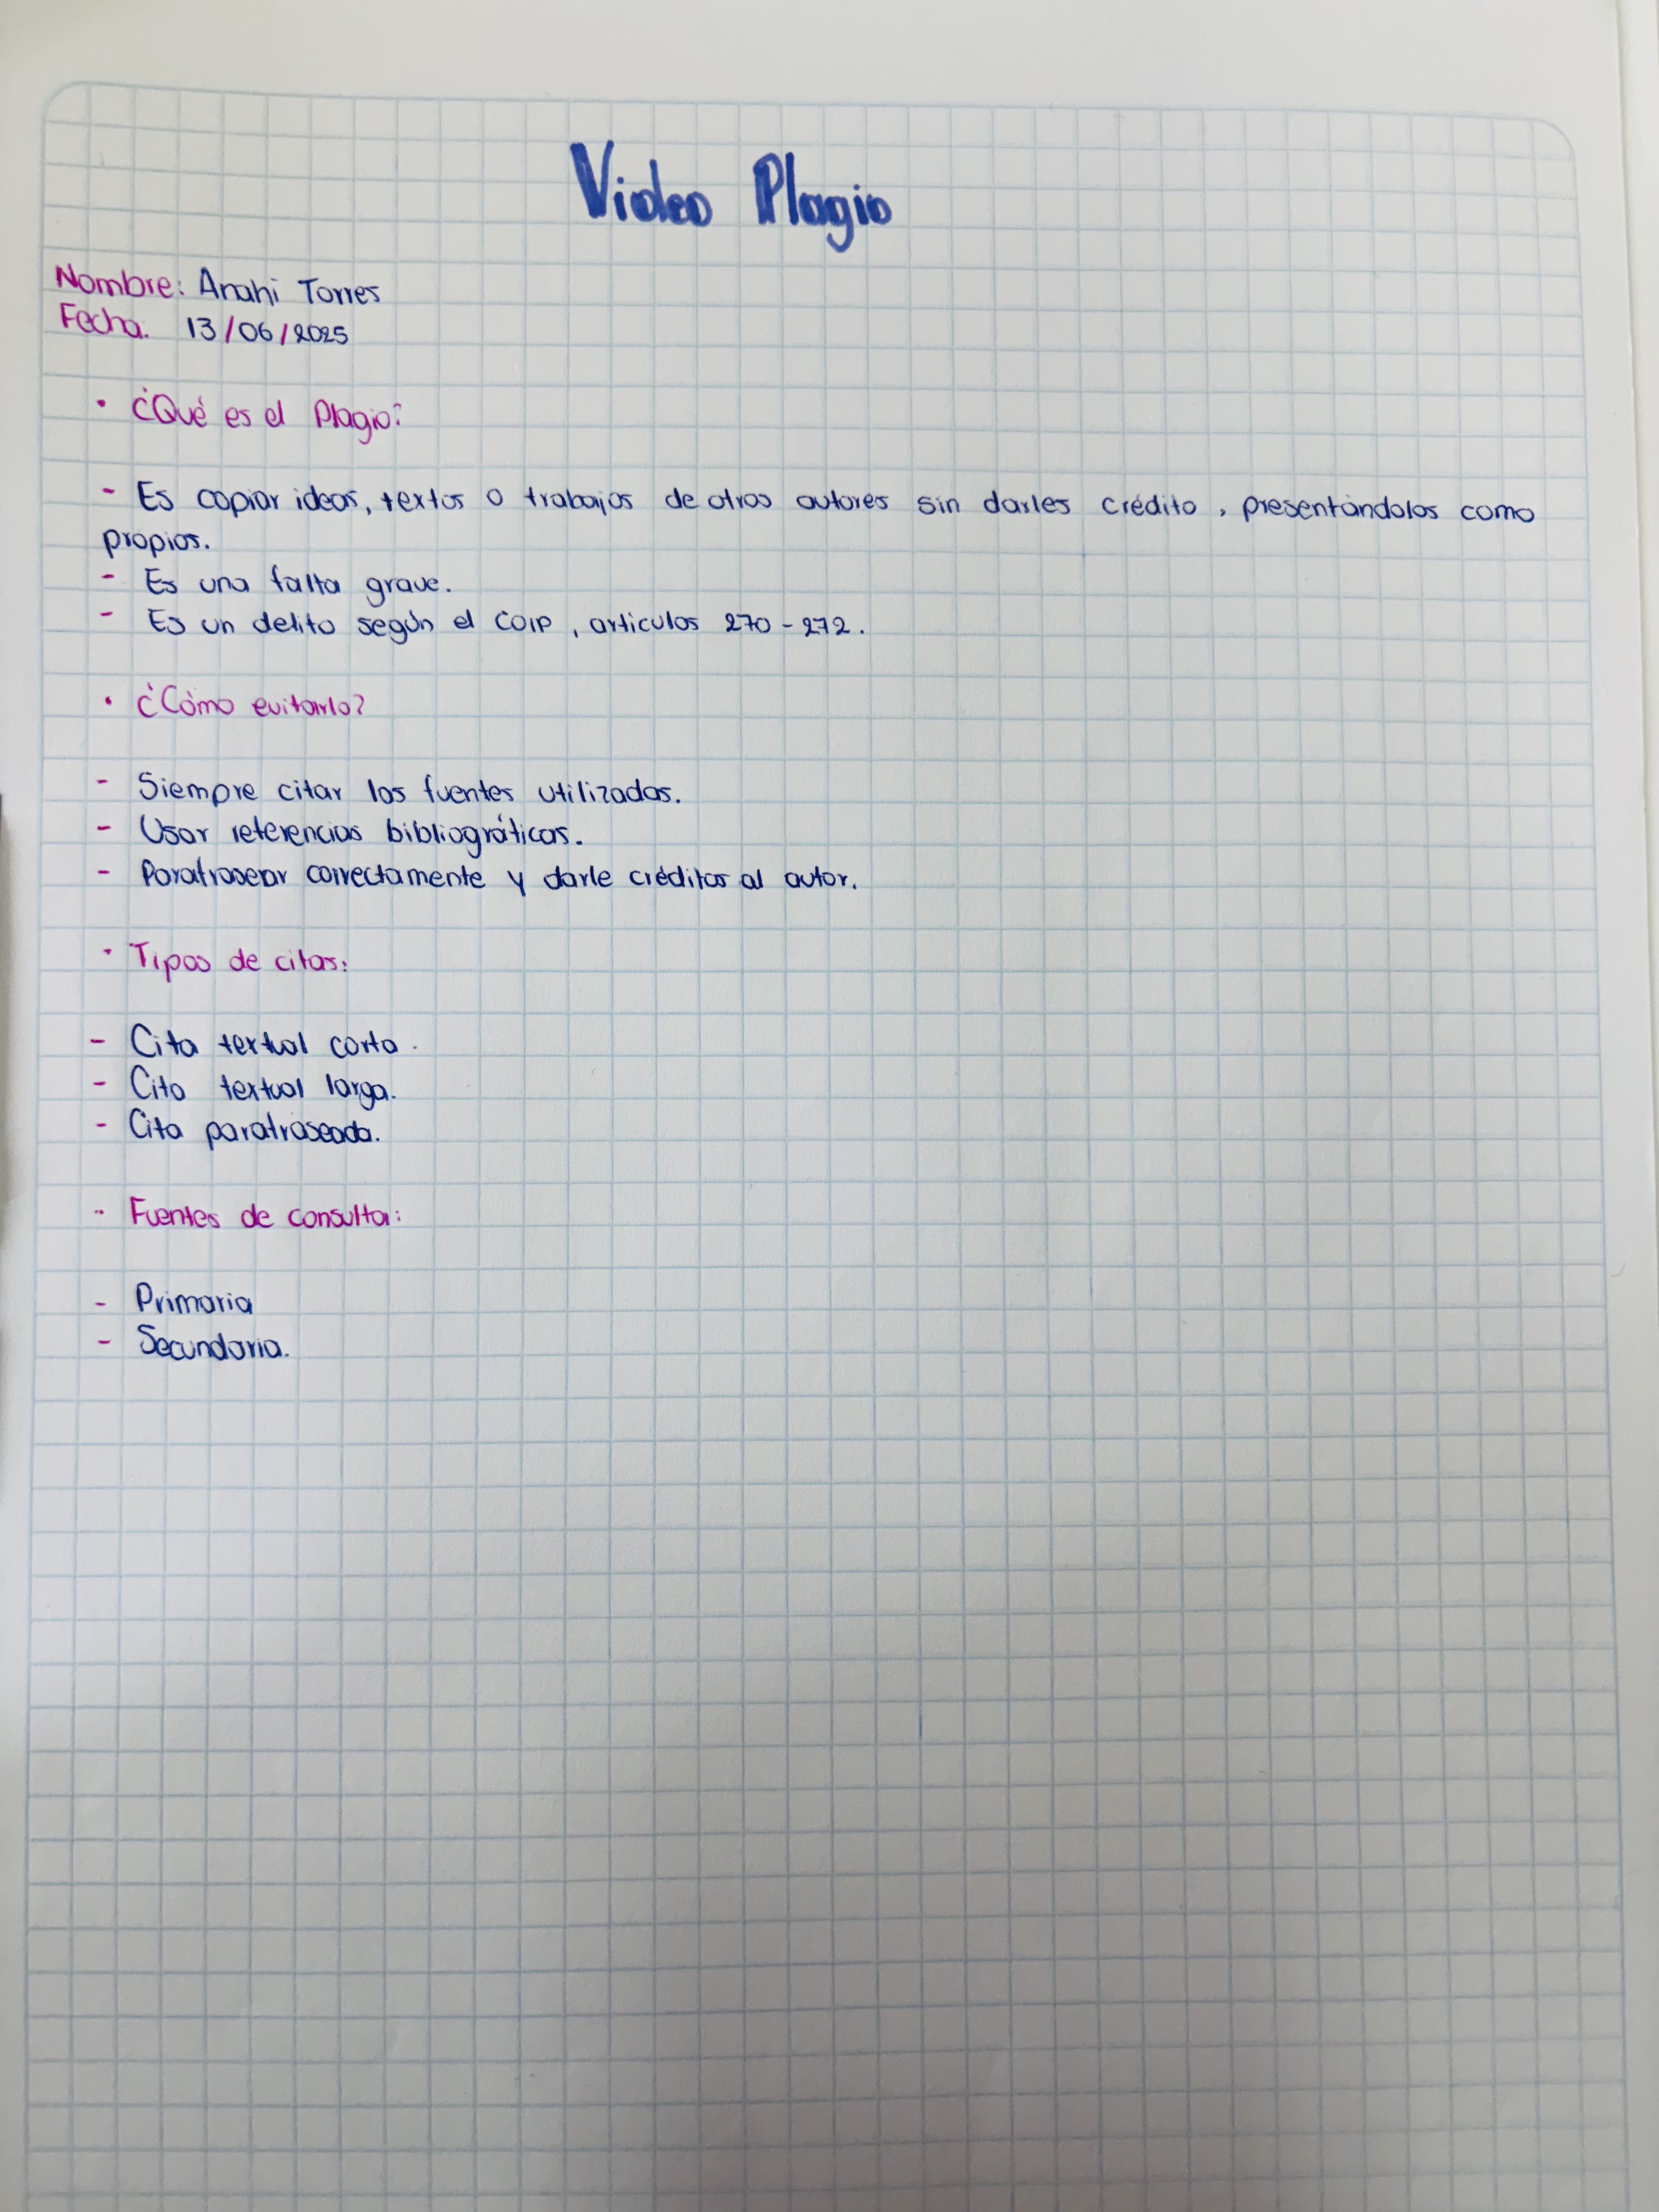 Video Plagio
Nombre: Anahi Torres
Fecha: 13/06/2025
• ¿Qué es el Plagio?
- Es copiar ideas, textos o trabajos de otros autores sin darles crédito, presentándolos como
propios.
- Es una falta grave.
- Es un delito según el COIP, articulos 270-272.
• ¿Cómo evitarlo?
- Siempre citar las fuentes utilizadas.
- Usar referencias bibliográficas.
- Parafrasear correctamente y darle créditos al autor.
• Tipos de citas:
- Cita textual corta.
- Cita textual larga.
- Cita parafraseada.
• Fuentes de consulta:
- Primaria
- Secundaria.